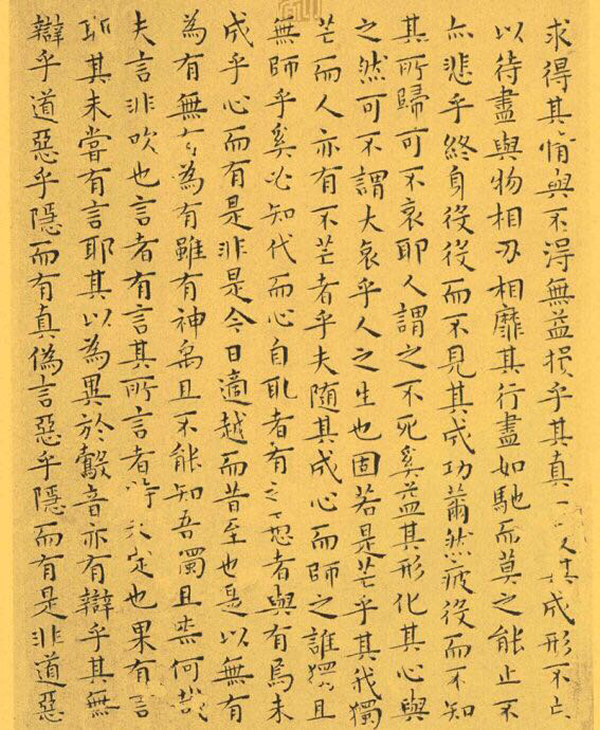 求得其情與不得無益損乎其真一其成形不亡
以待盡與物相刃相靡其行盡如馳而莫之能止不
亦悲乎終身役役而不見其成功薾然疲役而不知
其所歸可不哀耶人謂之不死奚益其形化其心與
之然可不謂大哀乎人之生也固若是芒乎其我獨
芒而人亦有不芒者乎夫隨其成心而師之誰獨且
無師乎奚必知代而心自取者有之愚者與有焉未
成乎心而有是非是今日適越而昔至也是以無有
為有無為有雖有神禹且不能知吾獨且柰何哉
夫言非吹也言者有言其所言者特未定也果有言
耶其未嘗有言耶其以為異於鷇音亦有辯乎其無
辯乎道惡乎隱而有真偽言惡乎隱而有是非道惡